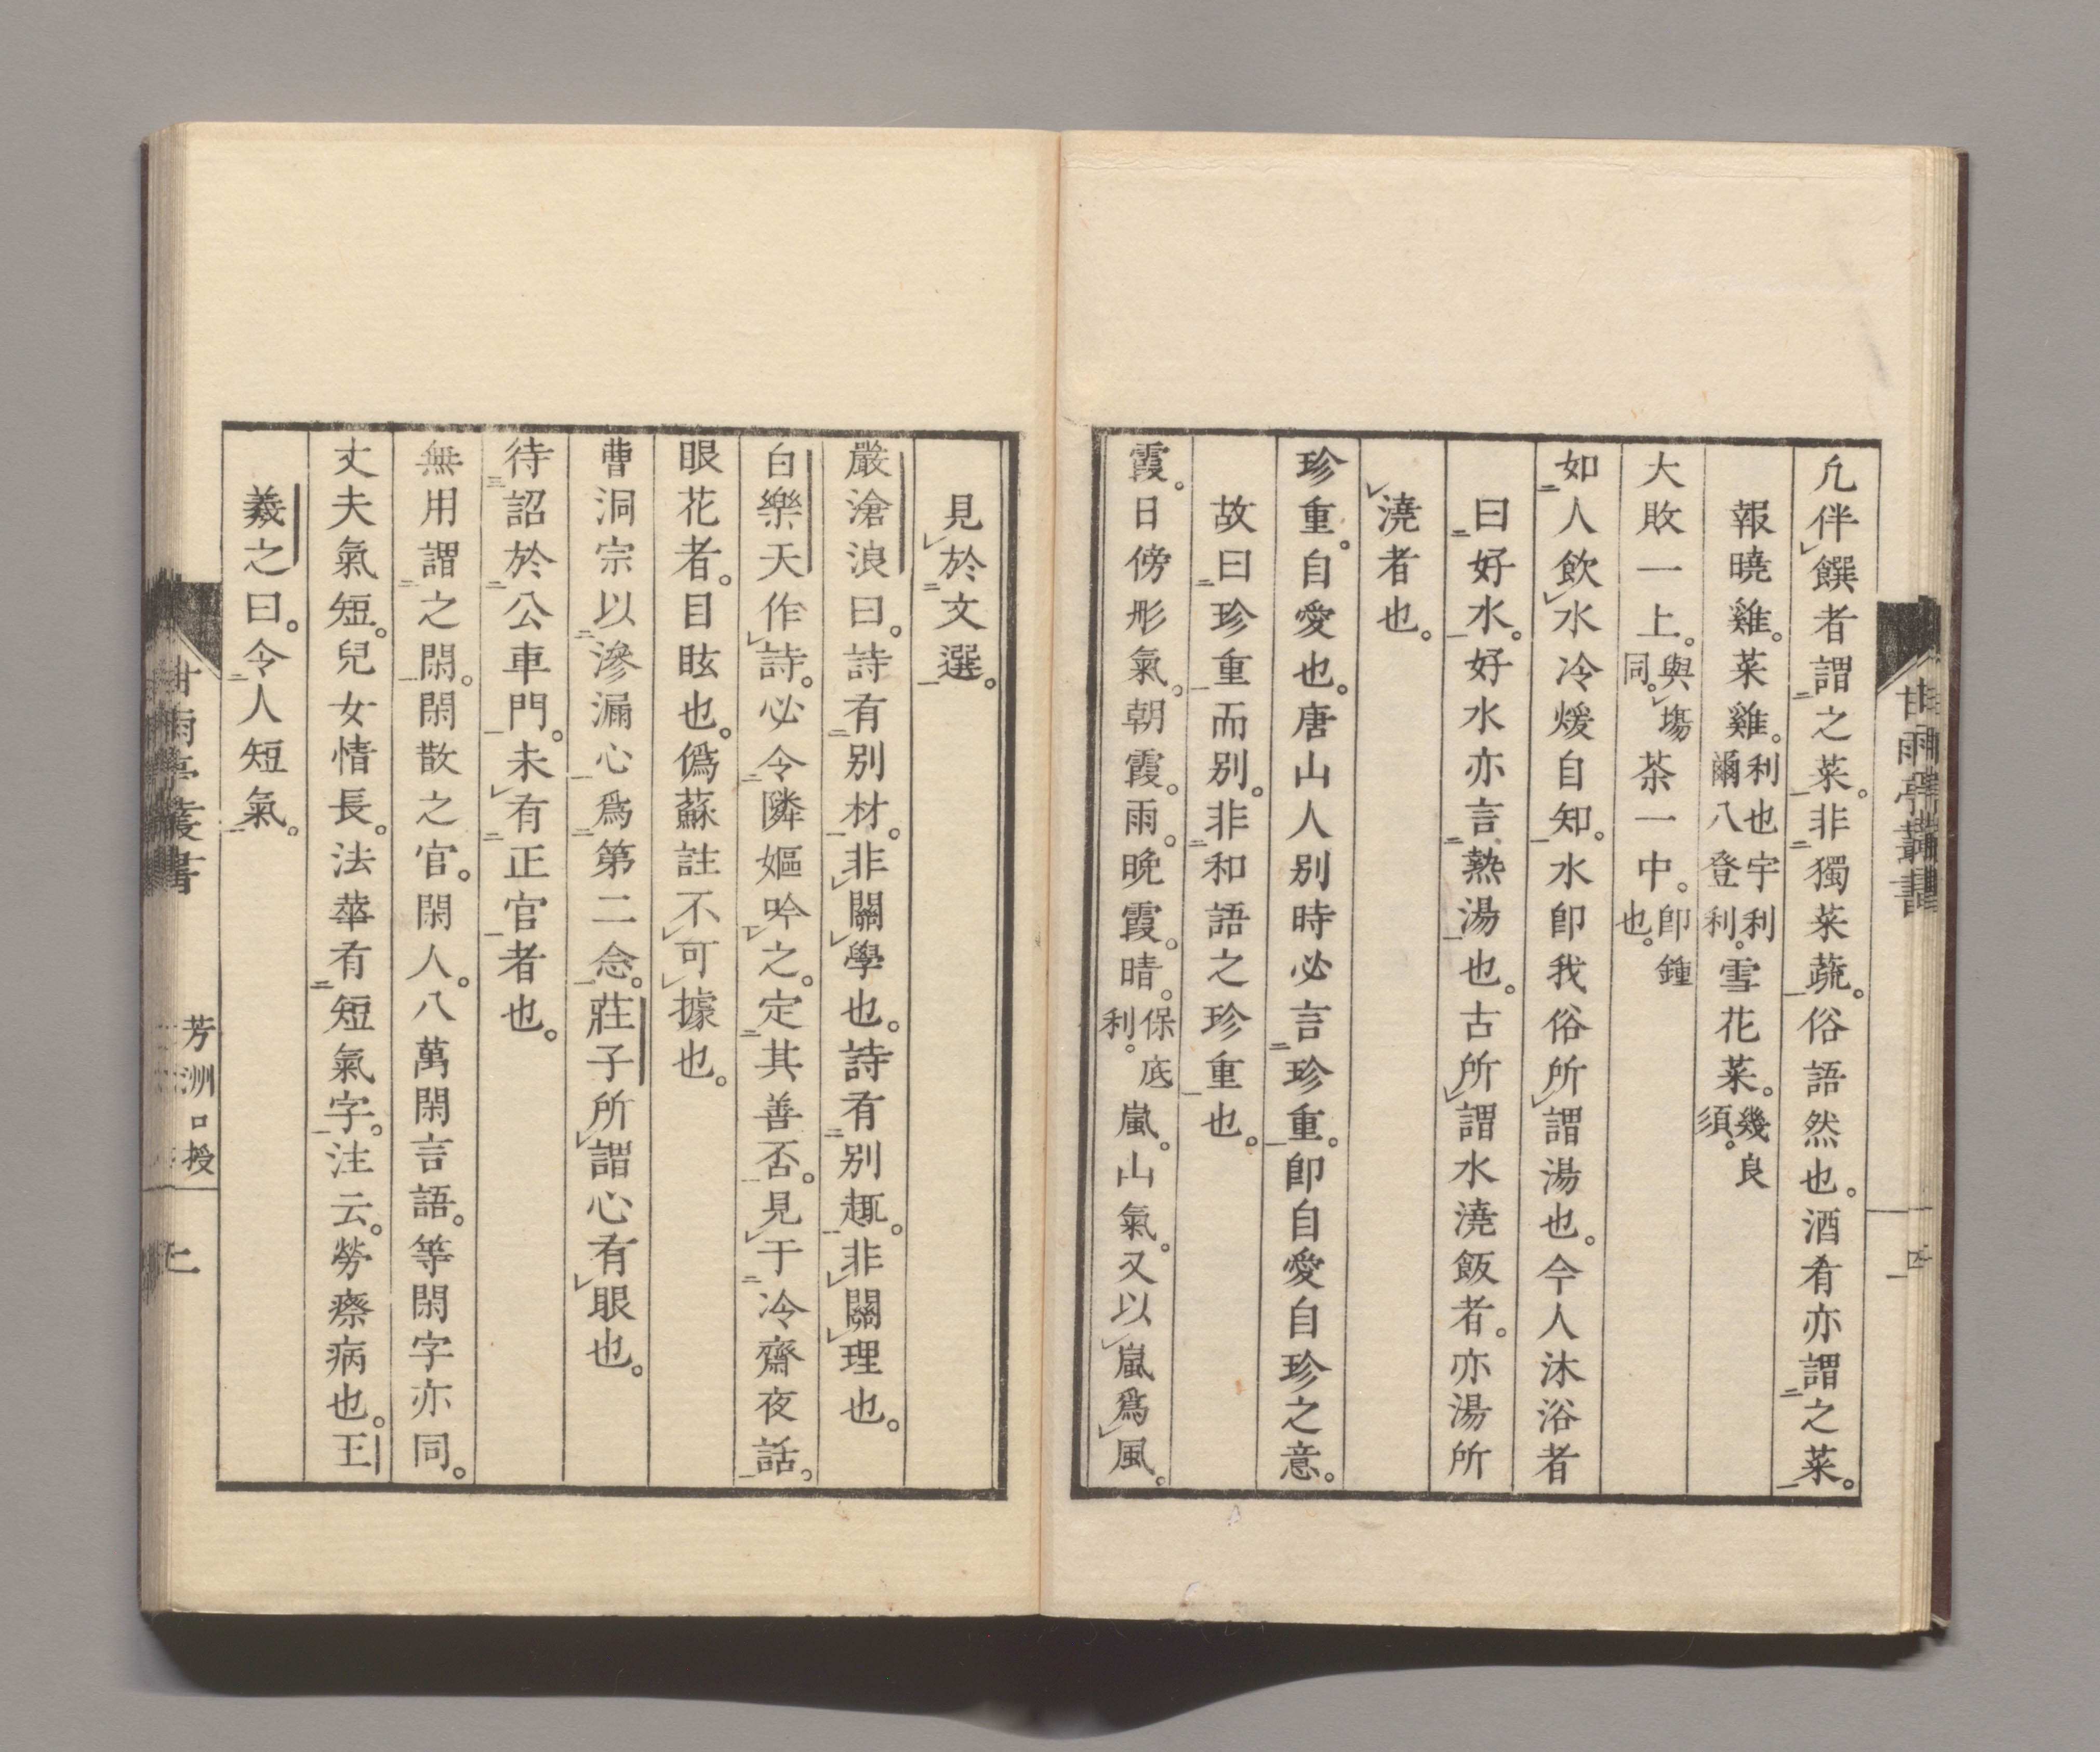 凢伴饌者謂之菜。非獨菜蔬。俗語然也。酒肴亦謂之菜。
報曉雞。菜雞。利也宇利爾八登利。雪花菜。幾良須。
大敗一上。與塲同。茶一中。卽鍾也。
如人飲水冷煖自知。水卽我俗所謂湯也。今人沐浴者
曰好水。好水亦言熱湯也。古所謂水澆飯者。亦湯所
澆者也。
珍重。自愛也。唐山人別時必言珍重。卽自愛自珍之意。
故曰珍重而別。非和語之珍重也。
霞。日傍形氣。朝霞。雨。晩霞。晴。保底利。嵐。山氣。又以嵐爲風。
見於文選。
嚴滄浪曰。詩有別材。非關學也。詩有別趣。非關理也。
白樂天作詩。必令隣嫗吟之。定其善否。見于冷齋夜話。
眼花者。目眩也。僞蘇註不可據也。
曹洞宗以滲漏心爲第二念。莊子所謂心有眼也。
待詔於公車門。未有正官者也。
無用謂之閑。閑散之官。閑人。八萬閑言語。等閑字亦同。
丈夫氣短。兒女情長。法華有短氣字。注云。勞瘵病也。王
羲之曰。令人短氣。
甘雨亭叢書
芳洲口授